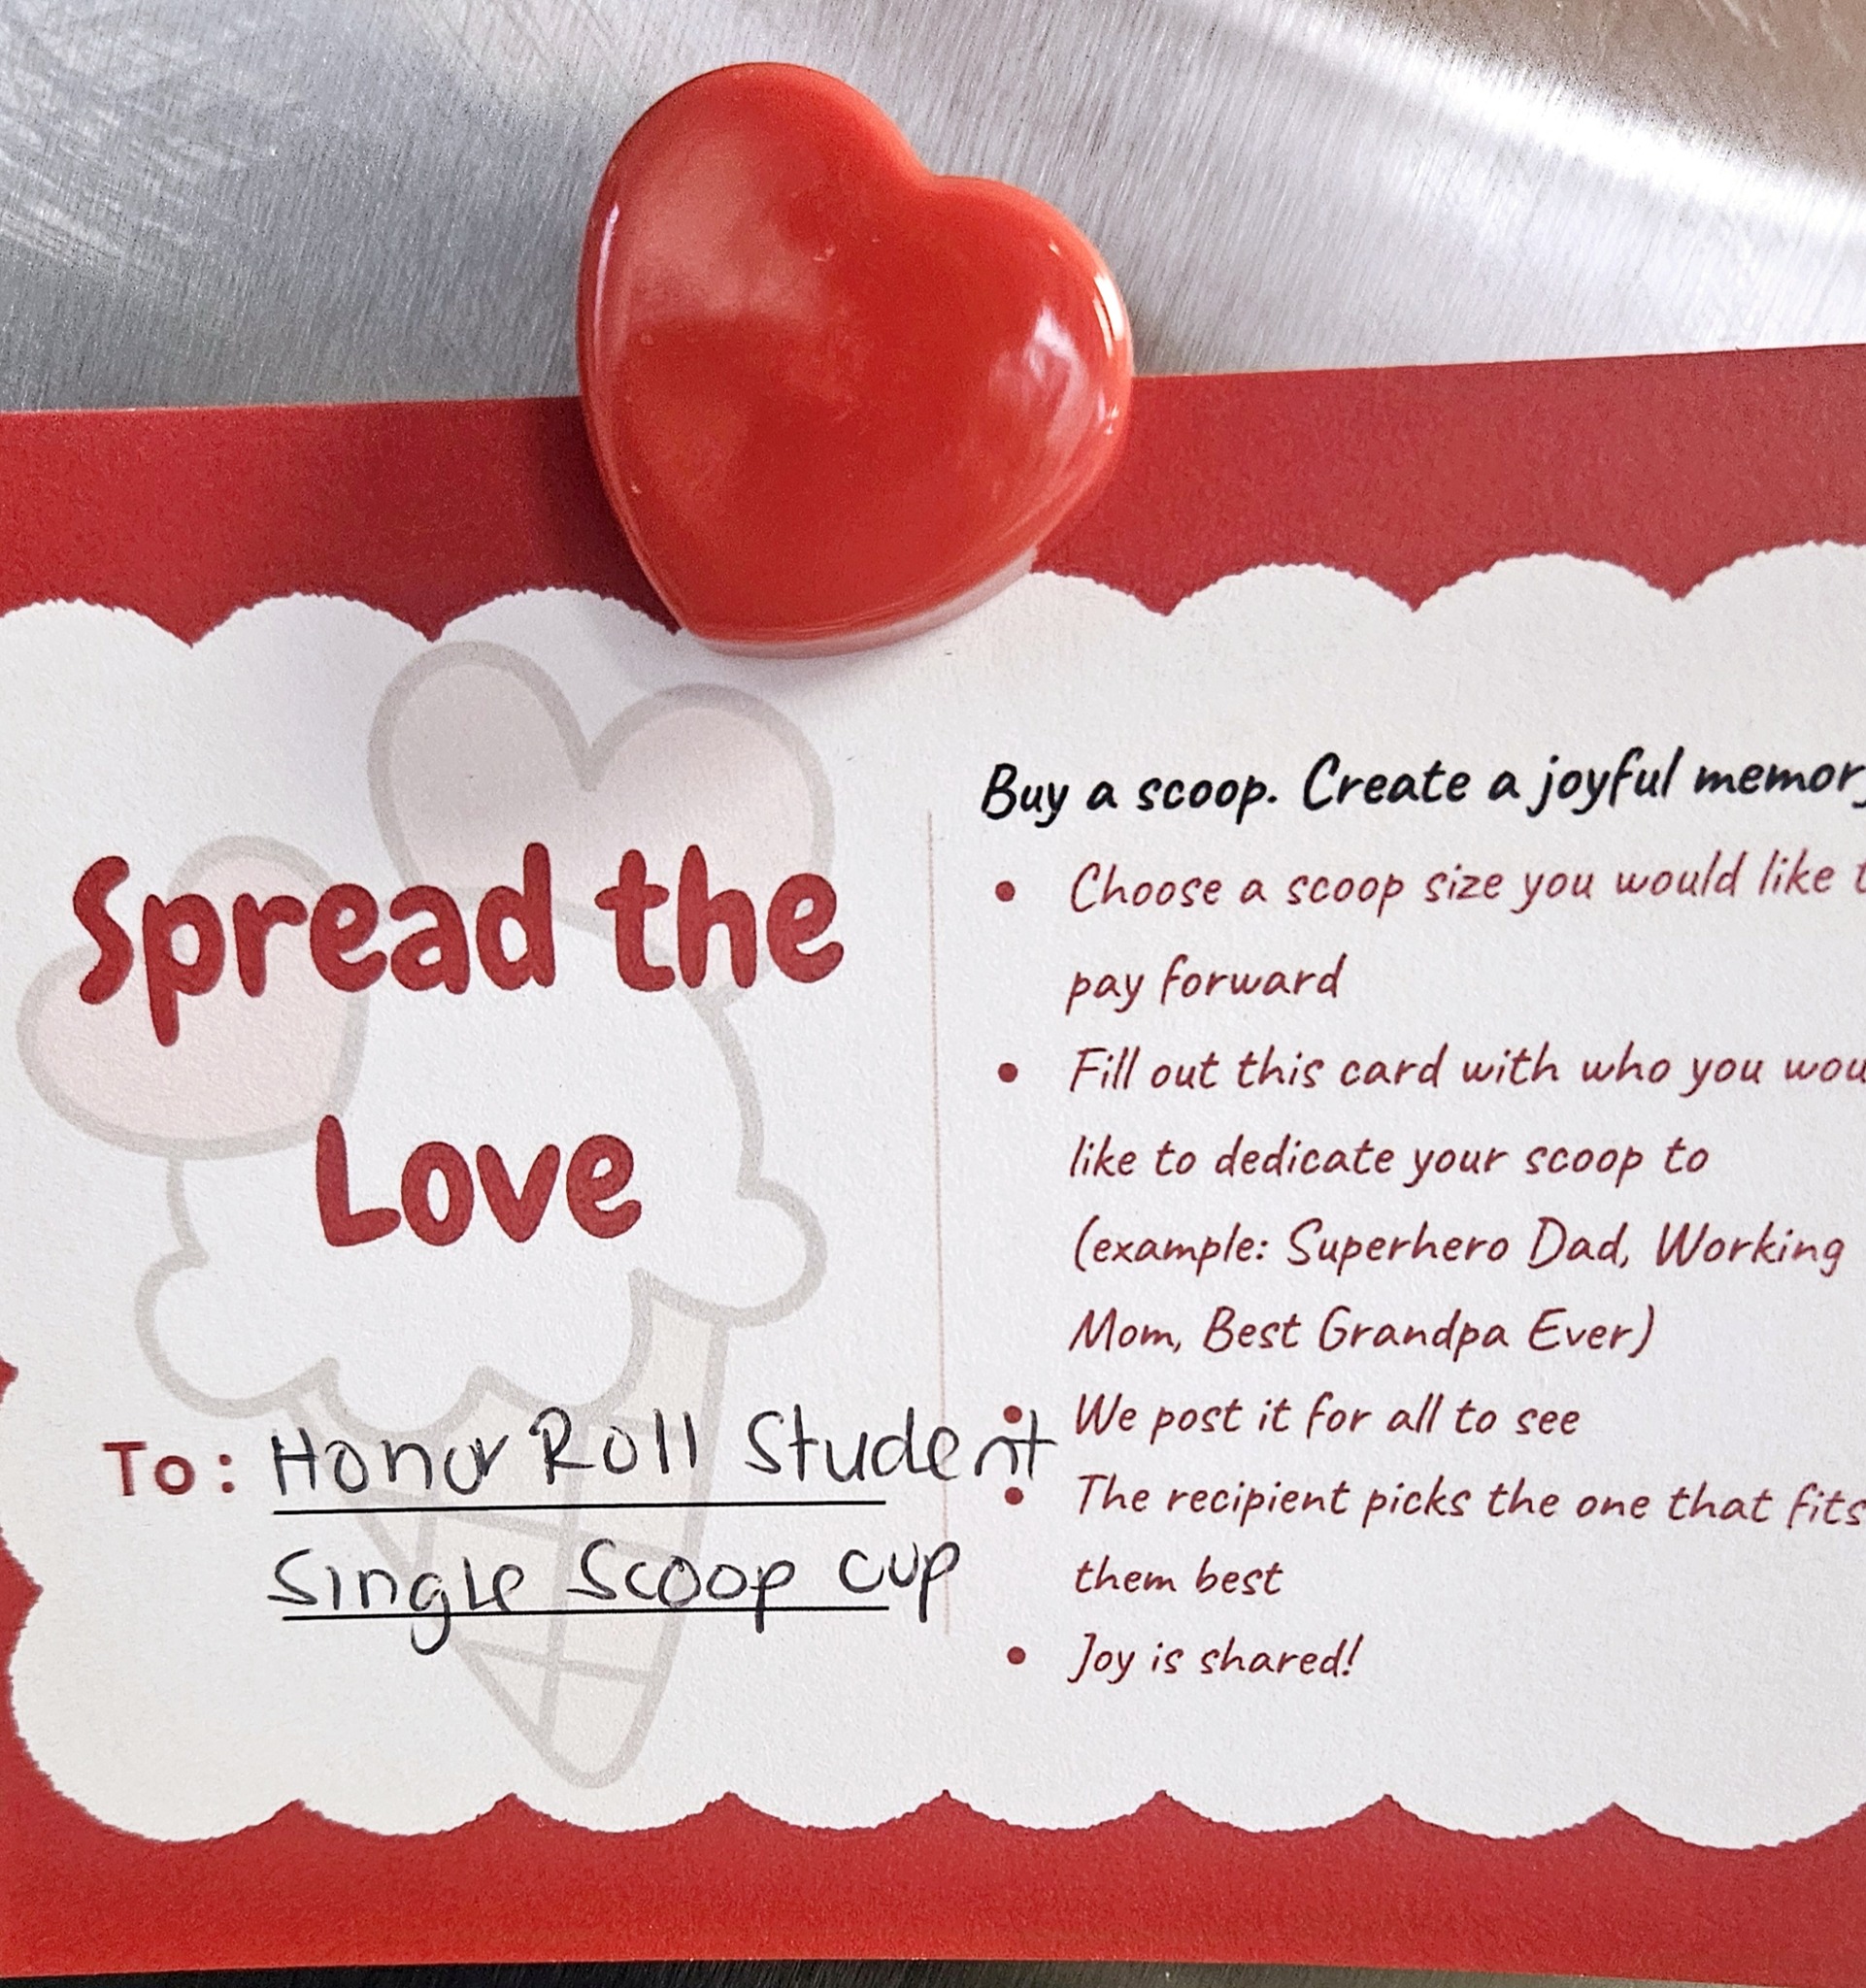 Spread the
Love
To: Honor Roll Student
Single Scoop cup
Buy a scoop. Create a joyful
• Choose a scoop size you would like
pay forward
• Fill out this card with who you
like to dedicate your scoop to
(example: Superhero Dad, Working
Mom, Best Grandpa Ever)
• We post it for all to see
• The recipient picks the one that fits
them best
• Joy is shared!